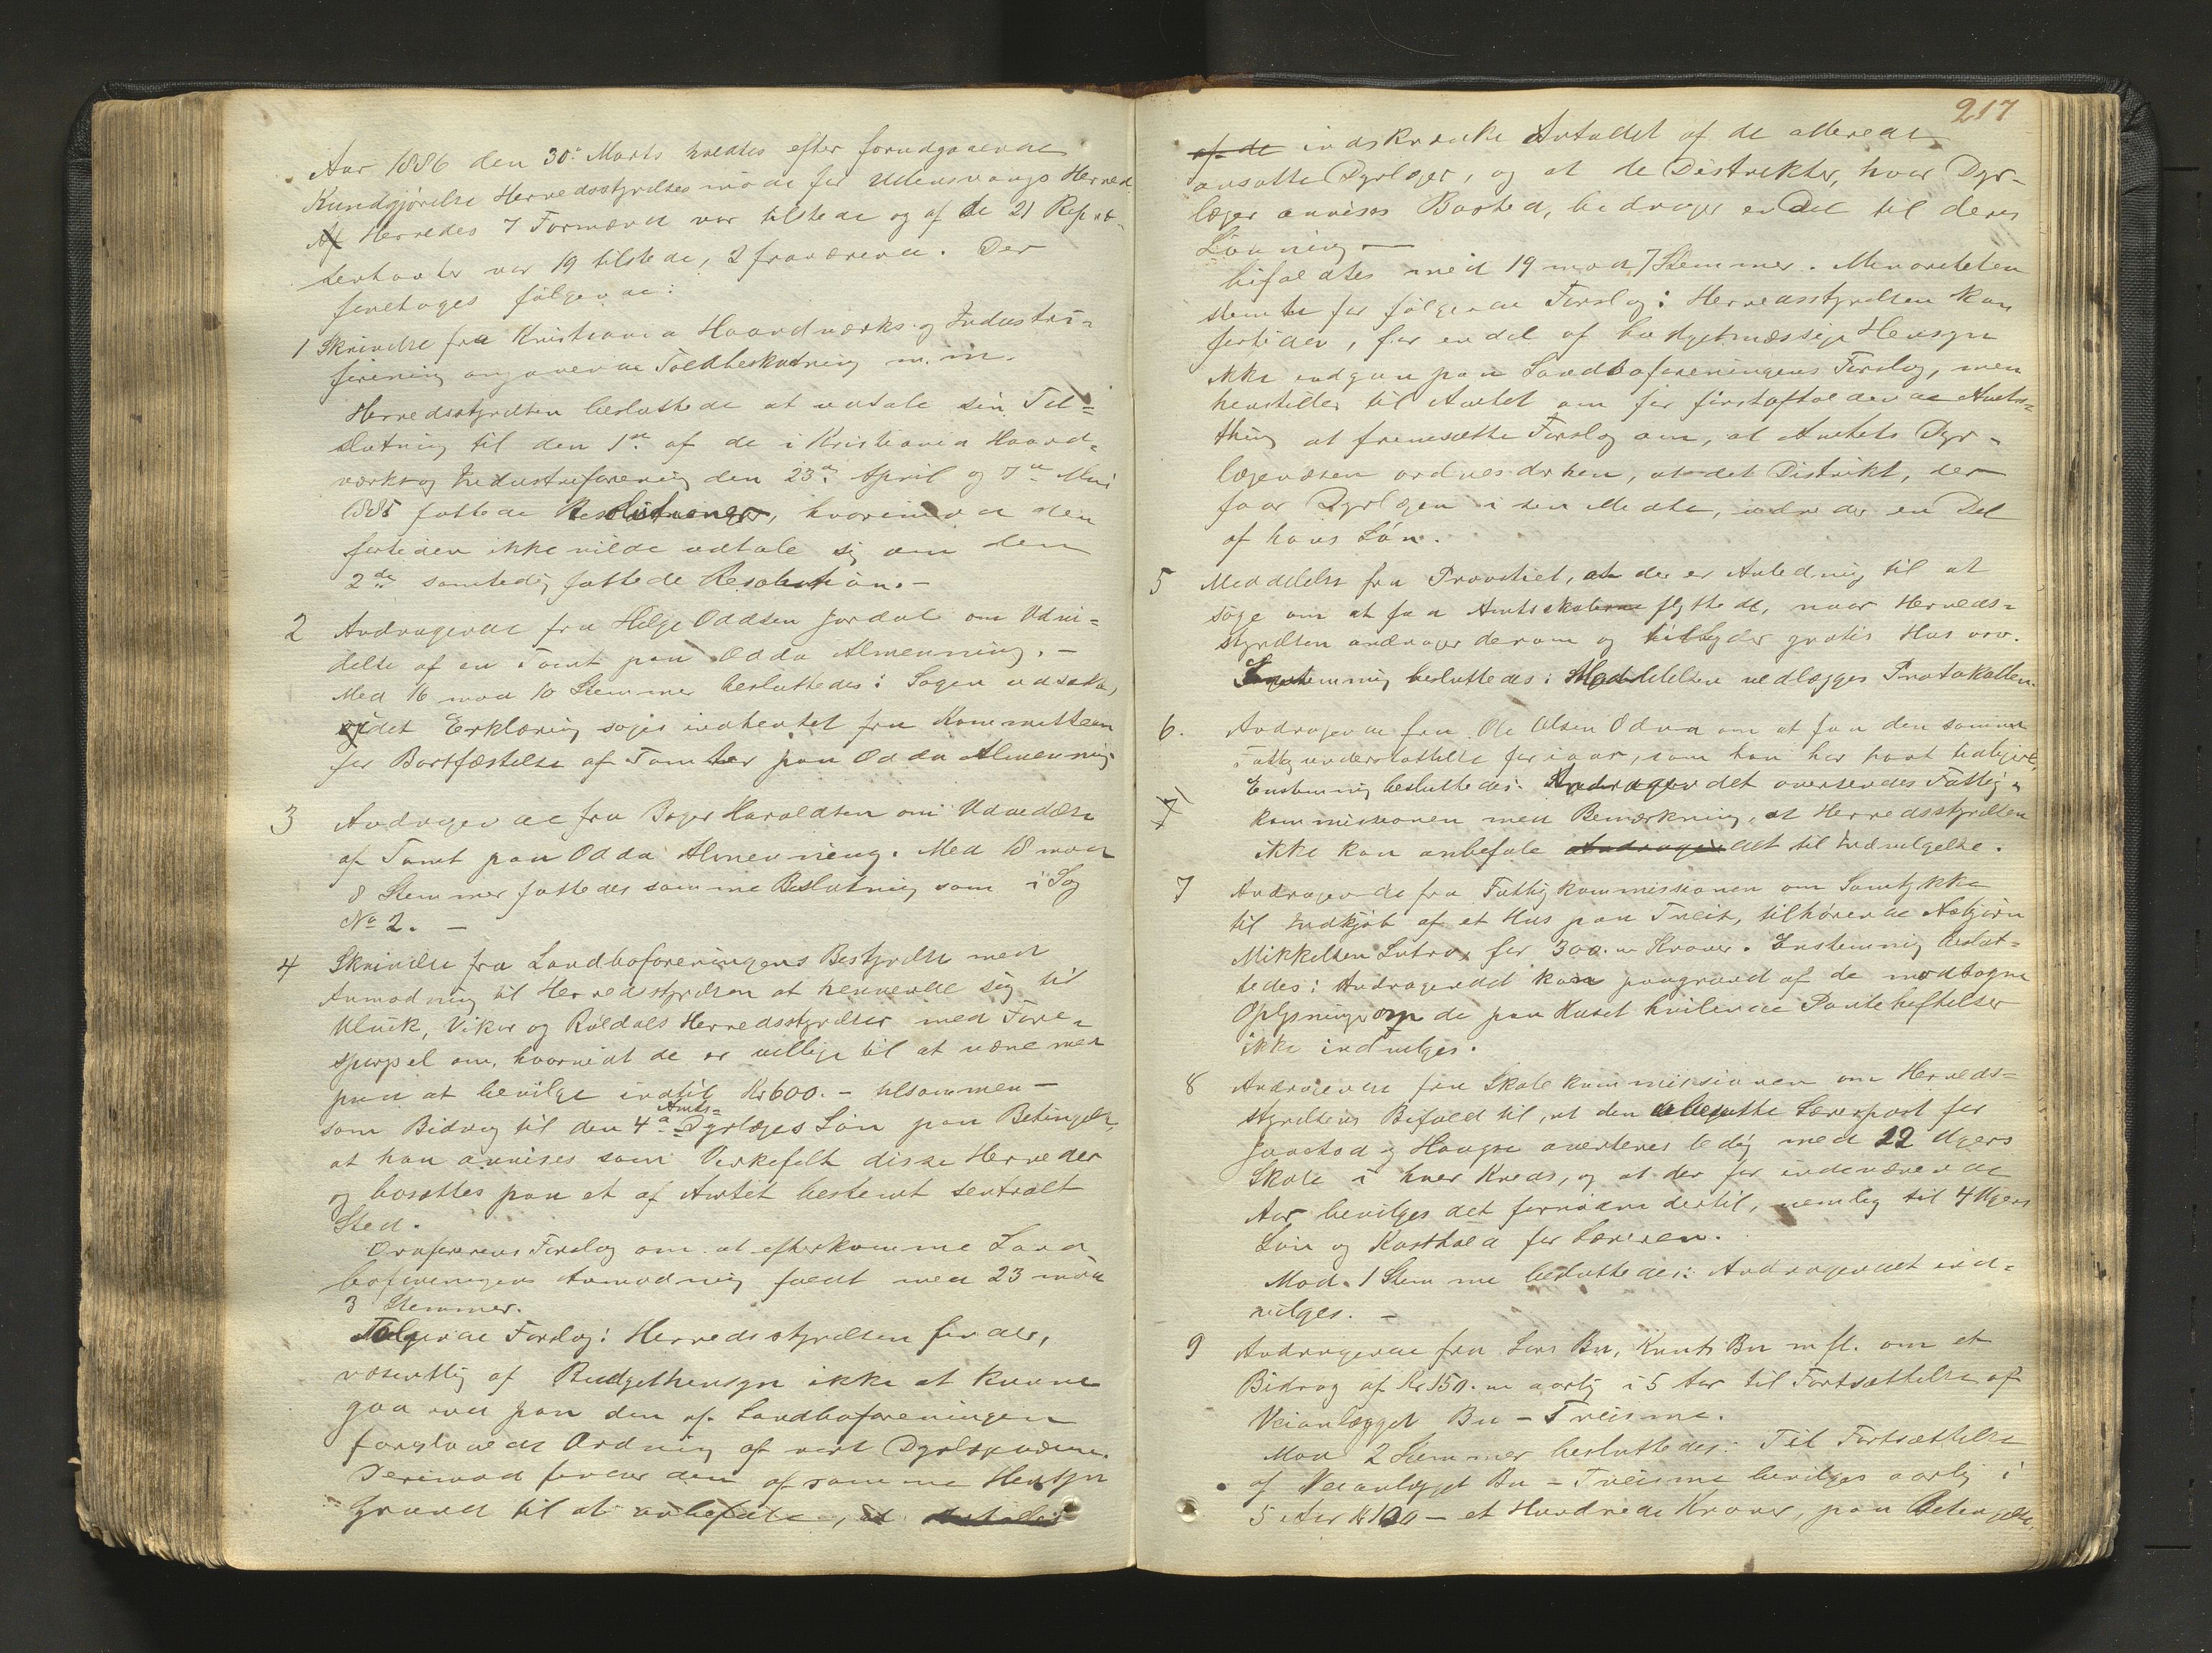 Aar 1886 den 30. Marts holdtes efter forudgaaende
Kundgjørelse Herredsstyrelsesmøde for Ullensvangs Herred
Af Herredes 7 Formænd var tilstede og af de 21 Repræ-
sentanter var 19 tilstede, 2 fraværende. Der
foretoges følgende:
1 Skrivelse fra Kristiania Haandværks og Industri-
forening angaaende Toldbeskatning m. m.
Herredsstyrelsen besluttede at udtale sin Til-
slutning til den 1ste af de i Kristiania Haand-
værks og Industriforening den 23de April og 7de Mai
1885 fattede Resolutioner, hvorimod den
fortiden ikke vilde udtale sig om den
2den samtidig fattede Resolution. -
2 Andragende fra Helge Oddsen Jordal om Udvi-
delse af en Tomt paa Odda Almenning. -
Med 16 mod 10 Stemmer besluttedes: Sagen udsættes,
idet Erklæring søges indhentet fra Kommitteen
for Bortfæstelse af Tomter paa Odda Almenning
3 Andragende fra Boger Haraldsen om Udvidelse
af Tomt paa Odda Almenning. Med 18 mod
8 Stemmer fattedes samme Beslutning som i Sag
No 2. -
4 Skrivelse fra Landboforeningens Bestyrelse med
Anmodning til Herredsstyrelsen at henvende sig til
Ulvik, Vikør og Røldals Herredsstyrelser med Fore-
spørgsel om, hvorvidt de er villige til at være med
paa at bevilge indtil Kr 600. - tilsammen -
som Bidrag til den 4de Amts- Dyrlæges Løn paa Betingelse,
at han anvises som Virkefelt disse Herreder
og bosættes paa et af Amtet bestemt sentralt
Sted.
Ordførerens Forslag om at efterkomme Land
boforeningens Anmodning faldt med 23 mod
3 Stemmer.
Følgende Forslag: Herredsstyrelsen finder,
væsentlig af Budgethensyn ikke at kunne
gaa ind paa den af Landboforeningen
foreslaaede Ordning af vort Dyrlægevæsen.
Derimod finder den af samme Hensyn
Grund til at anbefale, at Antallet
217
af de indskrænke Antallet af de allerede
ansatte Dyrlæger, og at de Distrikter, hvor Dyr-
læger anvises Bosted, bidrager en Del til deres
Lønning -
bifaldtes med 19 mod 7 Stemmer. Minoriteten
stemte for følgende Forslag: Herredsstyrelsen kan
fortiden, for en del af budgetmæssige Hensyn
ikke indgaa paa Landboforeningens Forslag, men
henstiller til Amtet om for førstafholdende Amts-
thing at fremsætte Forslag om, at Amtets Dyr-
lægevæsen ordnes derhen, at det Distrikt, der
faar Dyrlægen i sin Midte, udreder en Del
af hans Løn.
5 Meddelelse fra Provstiet, at der er Anledning til at
søge om at faa Amtsskolerne flyttede, naar Herreds-
styrelsen andrager derom og tilbyder gratis Hus osv.
Enstemmig besluttedes: Meddelelsen vedlægges Protokollen.
6. Andragende fra Ole Olsen Odda om at faa den samme
Fattigunderstøttelse for iaar, som han har havt tidligere,
Enstemmig besluttedes: Andragendet oversendes Fattig-
7 kommissionen med Bemærkning, at Herredsstyrelsen
ikke kan anbefale Andragendet til Indvilgelse.
7 Andragende fra Fattigkommissionen om Samtykke
til Indkjøb af et Hus paa Tveit, tilhørende Asbjørn
Mikkelsen Lutro, for 300.00 Kroner. Enstemmig beslut-
tedes: Andragendet kan paagrund af de modtagne
Oplysninger om de paa Huset hvilende Panteheftelser
ikke indvilges.
8 Andragende fra Skolekommissionen om Herreds-
styrelsens Bifald til, at den ubesatte Lærerpost for
Jaastad og Hauge averteres ledig med 12 Ugers
Skole i hver Kreds, og at der for indeværende
Aar bevilges det fornødne dertil, nemlig til 4 Ugers
Løn og Kosthold for Læreren.
Mod 1 Stemme besluttedes: Andragendet ind-
vilges. -
9 Andragende fra Lars Bu, Knut Bu m fl. om et
Bidrag af Kr 150.00 aarlig i 5 Aar til Fortsættelse af
Veianlægget Bu - Treisme.
Mod 2 Stemmer besluttedes: Til Fortsættelse
af Veianlægget Bu - Treisme bevilges aarlig i
5 Aar Kr 100 - et Hundrede Kroner, paa Betingelse,